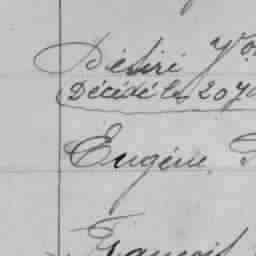 Désiré
Décédé le 20
Eugène
François